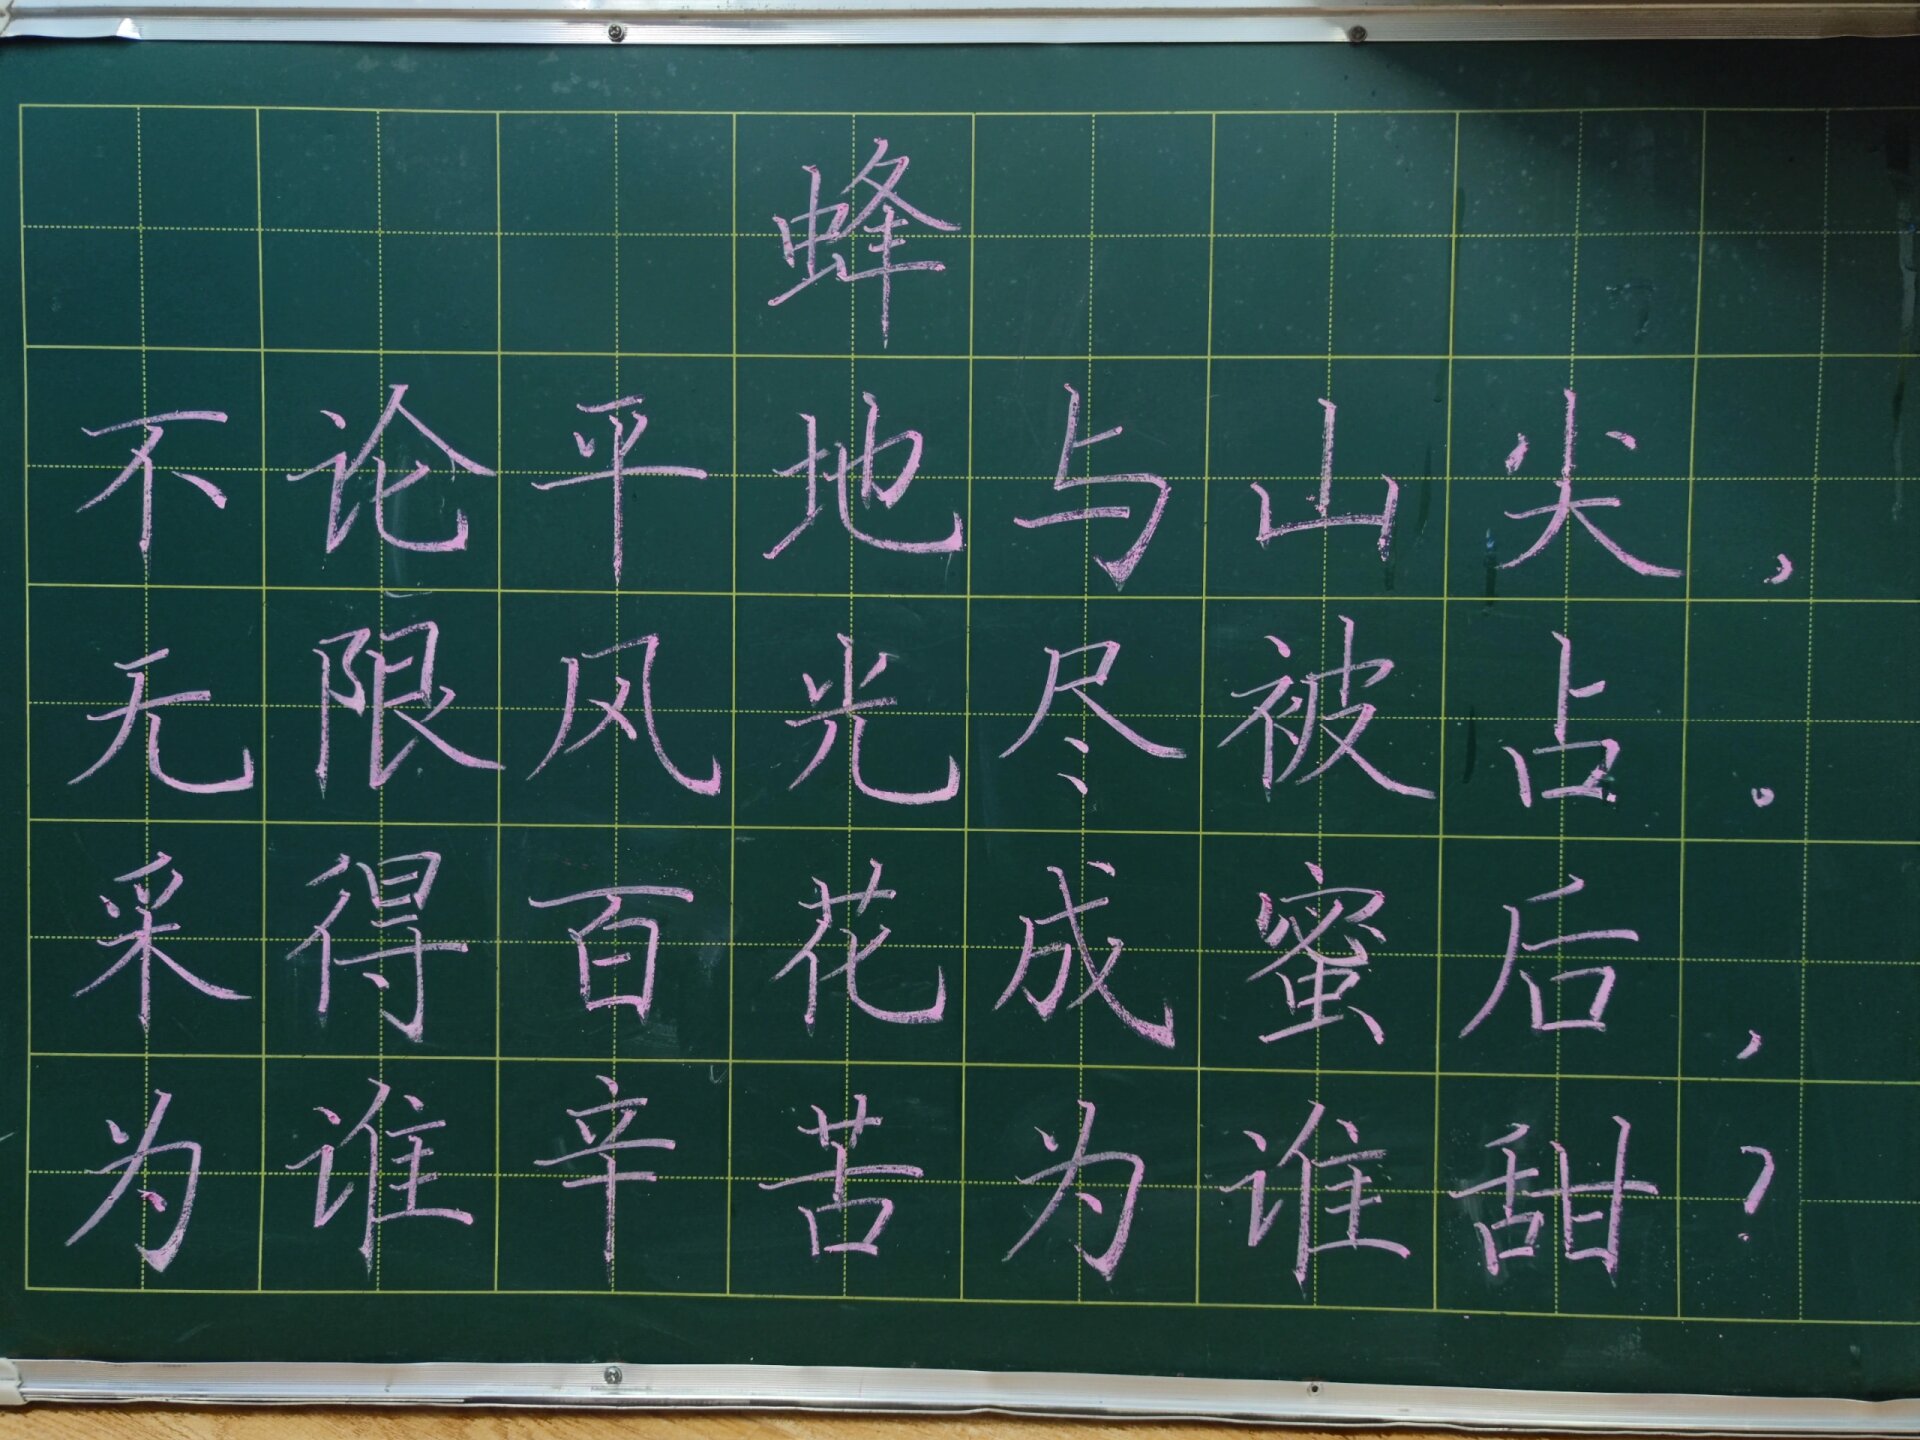 蜂
不论平地与山尖，
无限风光尽被占。
采得百花成蜜后，
为谁辛苦为谁甜？